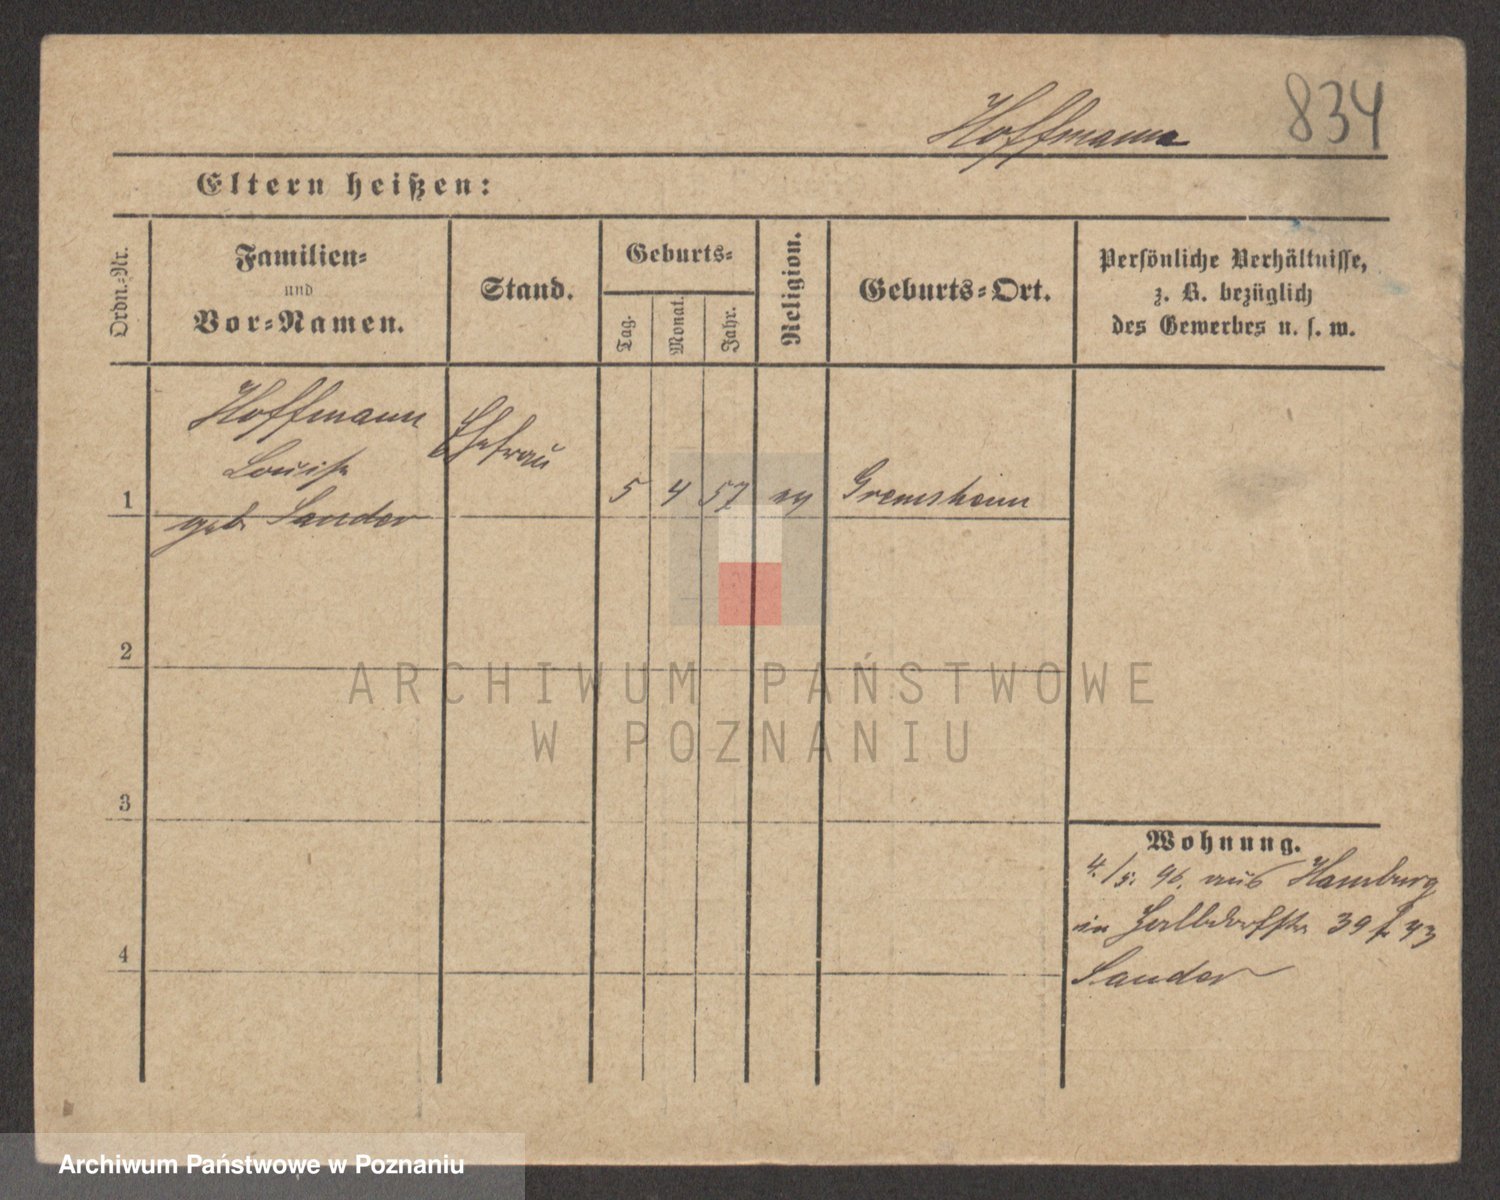 834
Hoffmann
Eltern heißen:
Ordn.-Nr.
Familien-
und
Vor-Namen.
Stand.
Geburts-
Tag.
Monat.
Jahr.
Religion.
Geburts-Ort.
Persönliche Verhältnisse,
z. B. bezüglich
des Gewerbes u. s. w.
1
Hoffmann
Louise
geb. Sander
Ehefrau
5 4 57 ev
2
3
4
Wohnung.
4./5. 96. aus Hamburg
in 39
Sander
ARCHIWUM PAŃSTWOWE
W POZNANIU
Archiwum Państwowe w Poznaniu